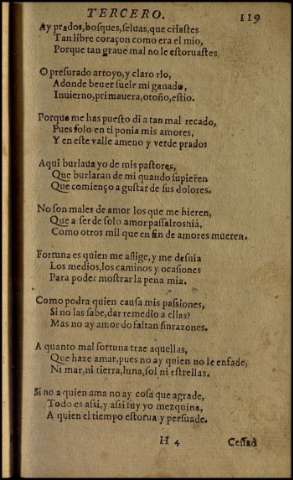 TERCERO. 119
Ay prados, bosques, seluas, que criastes
Tan libre coraçon como era el mio,
Porque tan graue mal no le estoruastes.
O presurado arroyo, y claro rio,
Adonde beuer suele mi ganado,
Inuierno, primauera, otoño, estio.
Porque me has puesto di a tan mal recado,
Pues solo en ti ponia mis amores,
Y en este valle ameno y verde prado?
Aqui burlaua yo de mis pastores,
Que burlaran de mi quando supieren
Que comienço a gustar de sus dolores.
No son males de amor los que me hieren,
Que a ser de solo amor passallos hia,
Como otros mil que en fin de amores mueren.
Fortuna es quien me aflige, y me desuia
Los medios, los caminos y ocasiones
Para poder mostrar la pena mia.
Como podra quien causa mis passiones,
Si no las sabe, dar remedio a ellas?
Mas no ay amor do faltan sinrazones.
A quanto mal fortuna trae aquellas,
Que haze amar, pues no ay quien no le enfade,
Ni mar, ni tierra, luna, sol ni estrellas.
Si no a quien ama no ay cosa que agrade,
Todo es assi, y assi fuy yo mezquina,
A quien el tiempo estorua y persuade.
H 4 Cessad